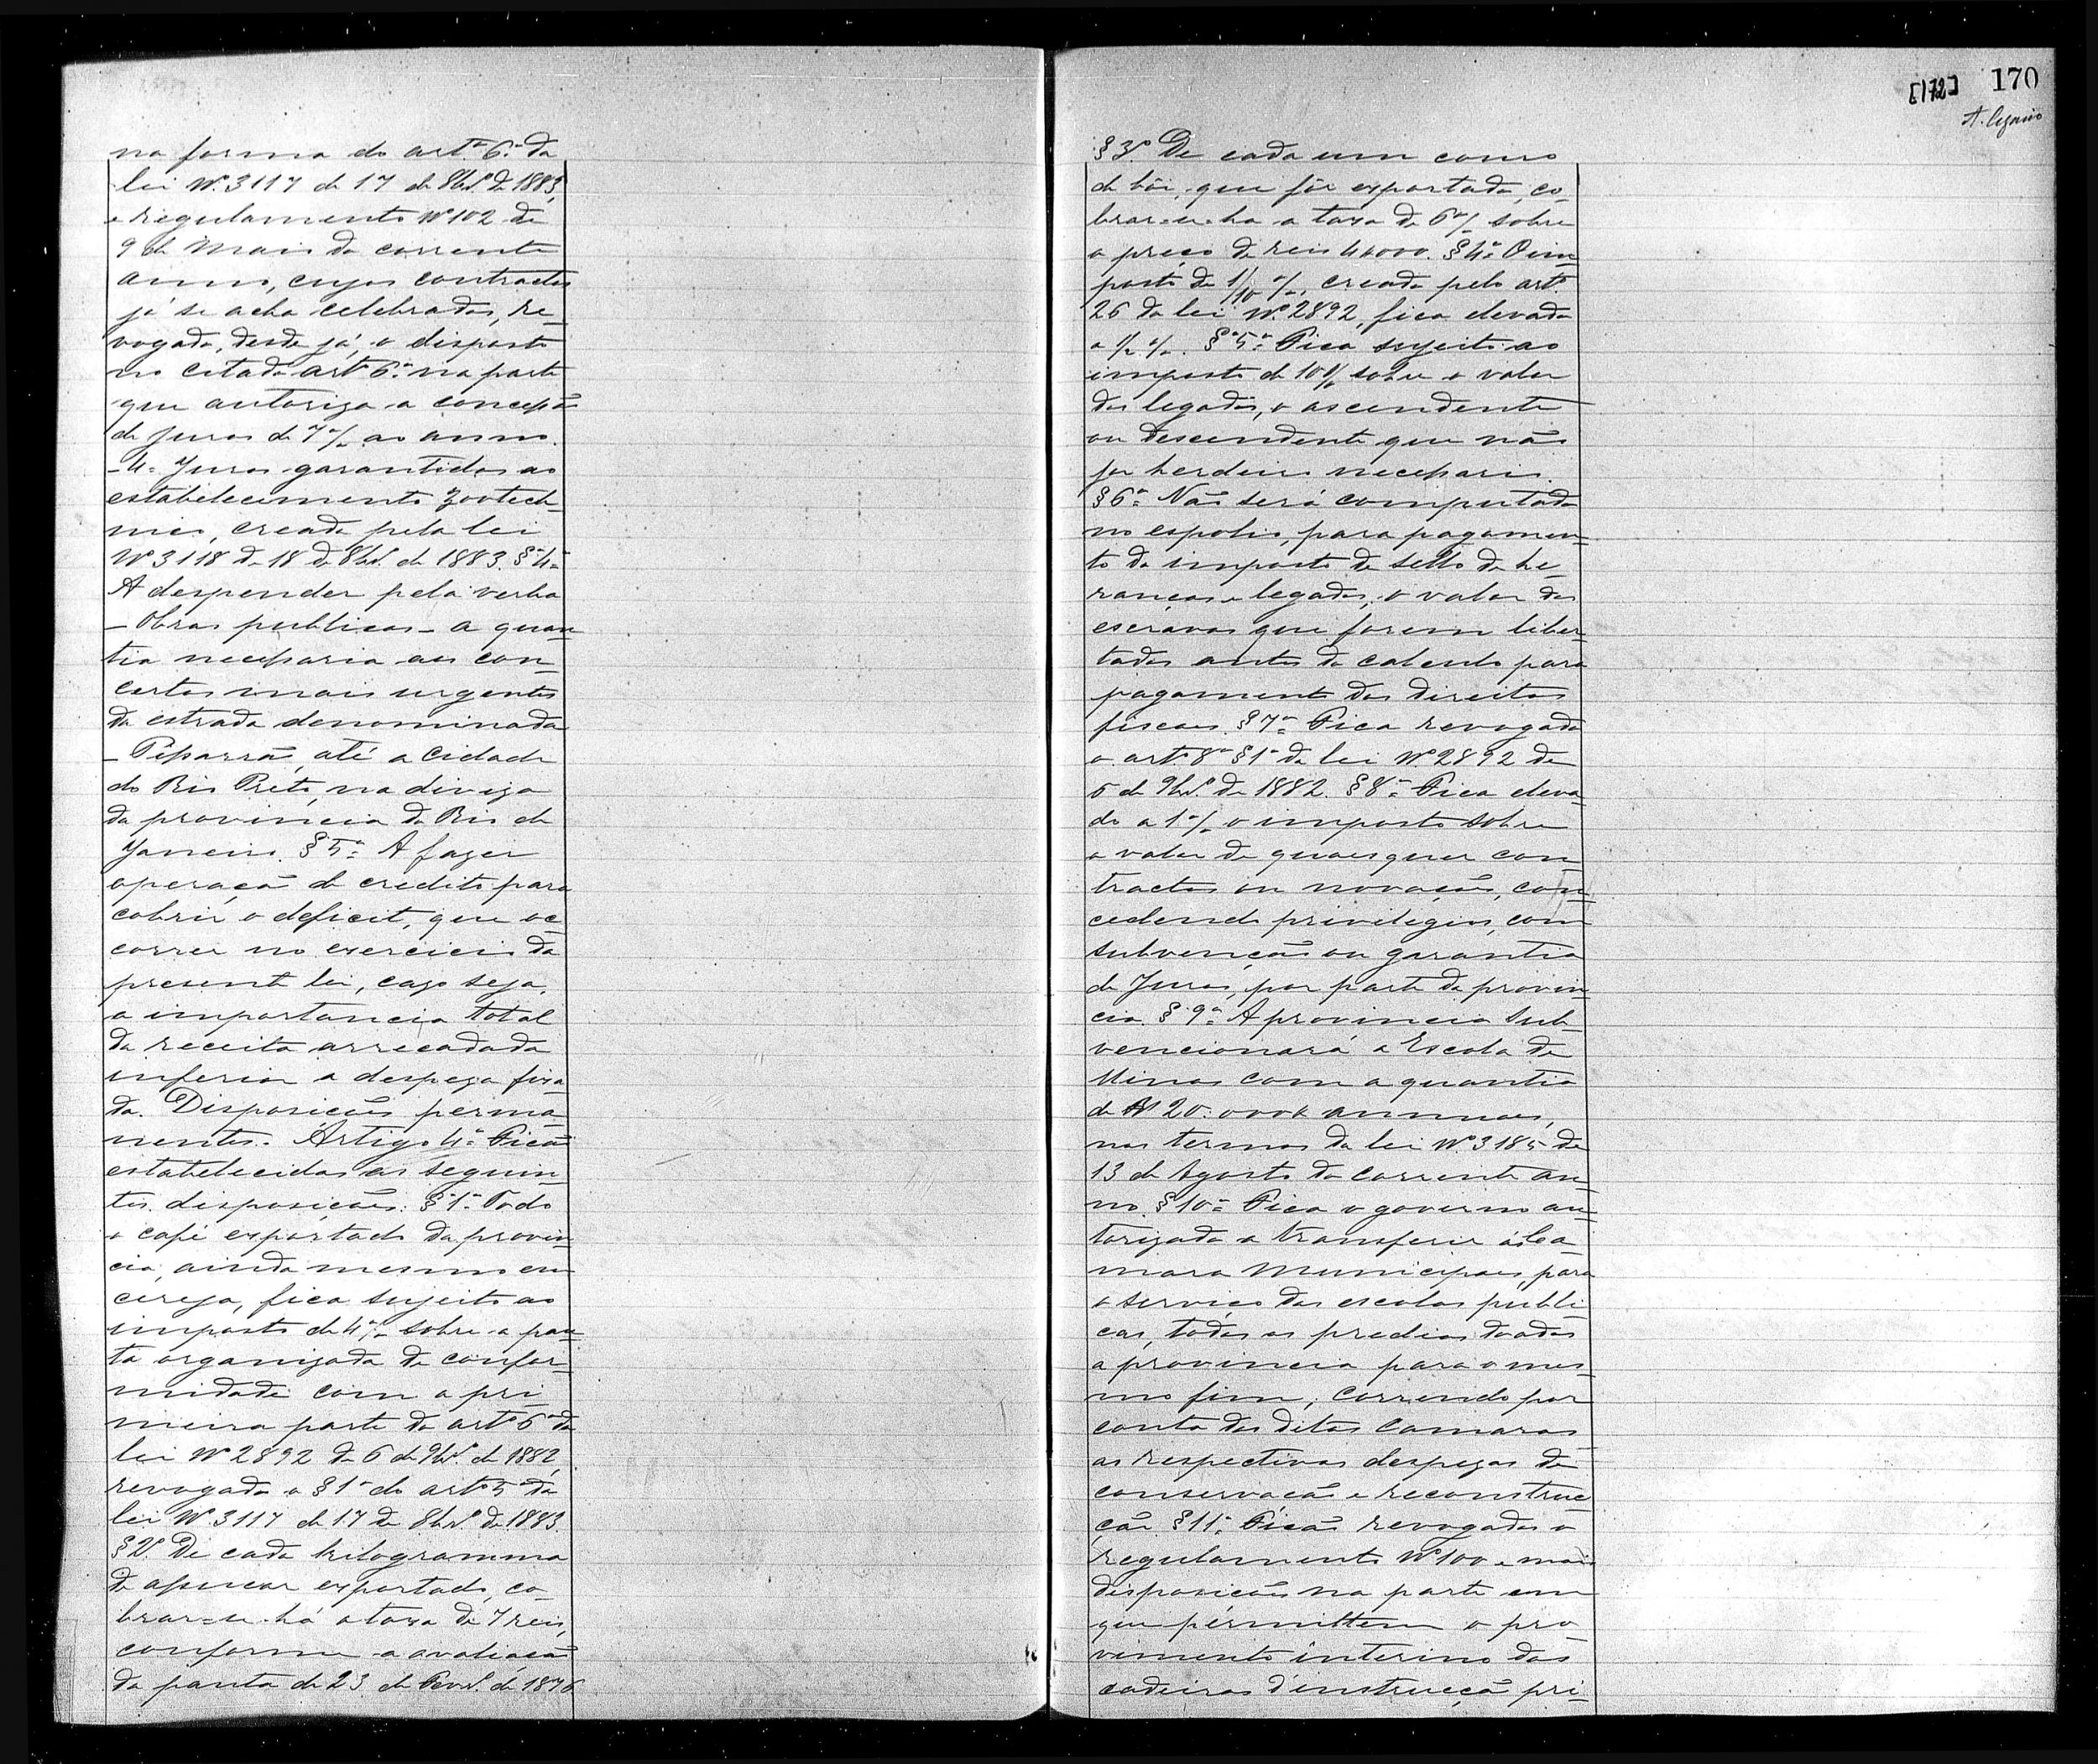 na forma do art.º 6.º da
lei Nº 3117 de 17 de 8br.º de 1883,
e regulamento Nº 102 de
9 de Maio do corrente
anno, cujos contractos
já se acha celebrados, re-
vogado, desde já, o disposto
no citado artº 6.º na parte
que autorisa a concessão
de juros de 7% ao anno.
-4º Juros garantidos ao
estabelecimento zootech-
nico, creado pela lei
Nº 3118 de 18 de 8br.º de 1883. § 4º
A despender pela verba
- Obras publicas - a quan-
tia necessaria aos con-
certos mais urgentes
da estrada denominada
- Pissarrão, até a cidade
do Rio Preto, na diviza
da provincia do Rio de
Janeiro. § 5º A fazer
operação de credito para
cobrir o deficit, que oc-
correr no exercicio da
presente lei, cazo seja,
a importancia total
da receita arrecadada
inferior a despeza fixa-
da. Disposições perma-
nentes. Artigo 4º Ficão
estabelecidas as seguin-
tes disposições: § 1º Todo
o café exportado da provin-
cia, ainda mesmo em
cereja, fica sujeito ao
imposto de 4% sobre a pau-
ta organizada de confor-
midade com a pri-
meira parte do artº 6º da
lei Nº 2892 de 6 de 9br.º de 1882,
revogado o § 1º do artº 5º da
lei Nº 3117 de 17 de 8br.º de 1883.
§ 2º De cada kilogramma
de assucar exportado, co-
brar-se-há a taxa de 7 reis,
conforme a avaliação
da pauta de 23 de Fevr.º de 1876
[172] 170
§ 3º De cada um couro
de bôi, que fôr exportado, co-
brar-se-ha a taxa de 6% sobre
o preço de reis 4$000. § 4º O im-
posto de 1/10 %, creado pelo artº
26 da lei Nº 2892, fica elevado
a ½ %. § 5º Fica sujeito ao
imposto de 10% sobre o valor
dos legados, o ascendente
ou descendente que não
for herdeiro necessario.
§ 6º Não será computado
no espolio, para pagamen-
to do imposto de sello de he-
ranças e legados, o valor dos
escravos que forem liber-
tados antes do calculo para
pagamento dos direitos
fiscaes. § 7º Fica revogado
o artº 8º § 1º da lei Nº 2892 de
6 de 9br.º de 1882. § 8º Fica eleva-
do a 1% o imposto sobre
o valor de quaesquer con-
tractos ou novações, con-
cedendo privilegios, com
subvenção ou garantia
de Juros, por parte da provin-
cia. § 9º A provincia sub-
vencionará a Escola de
Minas com a quantia
de R$ 20:000$ annuaes,
nos termos da lei Nº 3185 de
13 de Agosto do corrente an-
no. § 10º Fica o governo au-
torizado a transferir ás Ca-
mara Municipaes, para
o serviço das escolas publi-
cas, todos os predios doados
a provincia para o mes-
mo fim, correndo por
conta das ditas Camaras
as respectivas despezas de
conservação e reconstruc-
ção. § 11º Ficão revogados o
regulamento Nº 100 e mais
disposições na parte em
que permittem o pro-
vimento interino das
cadeiras d'instrucção pri-